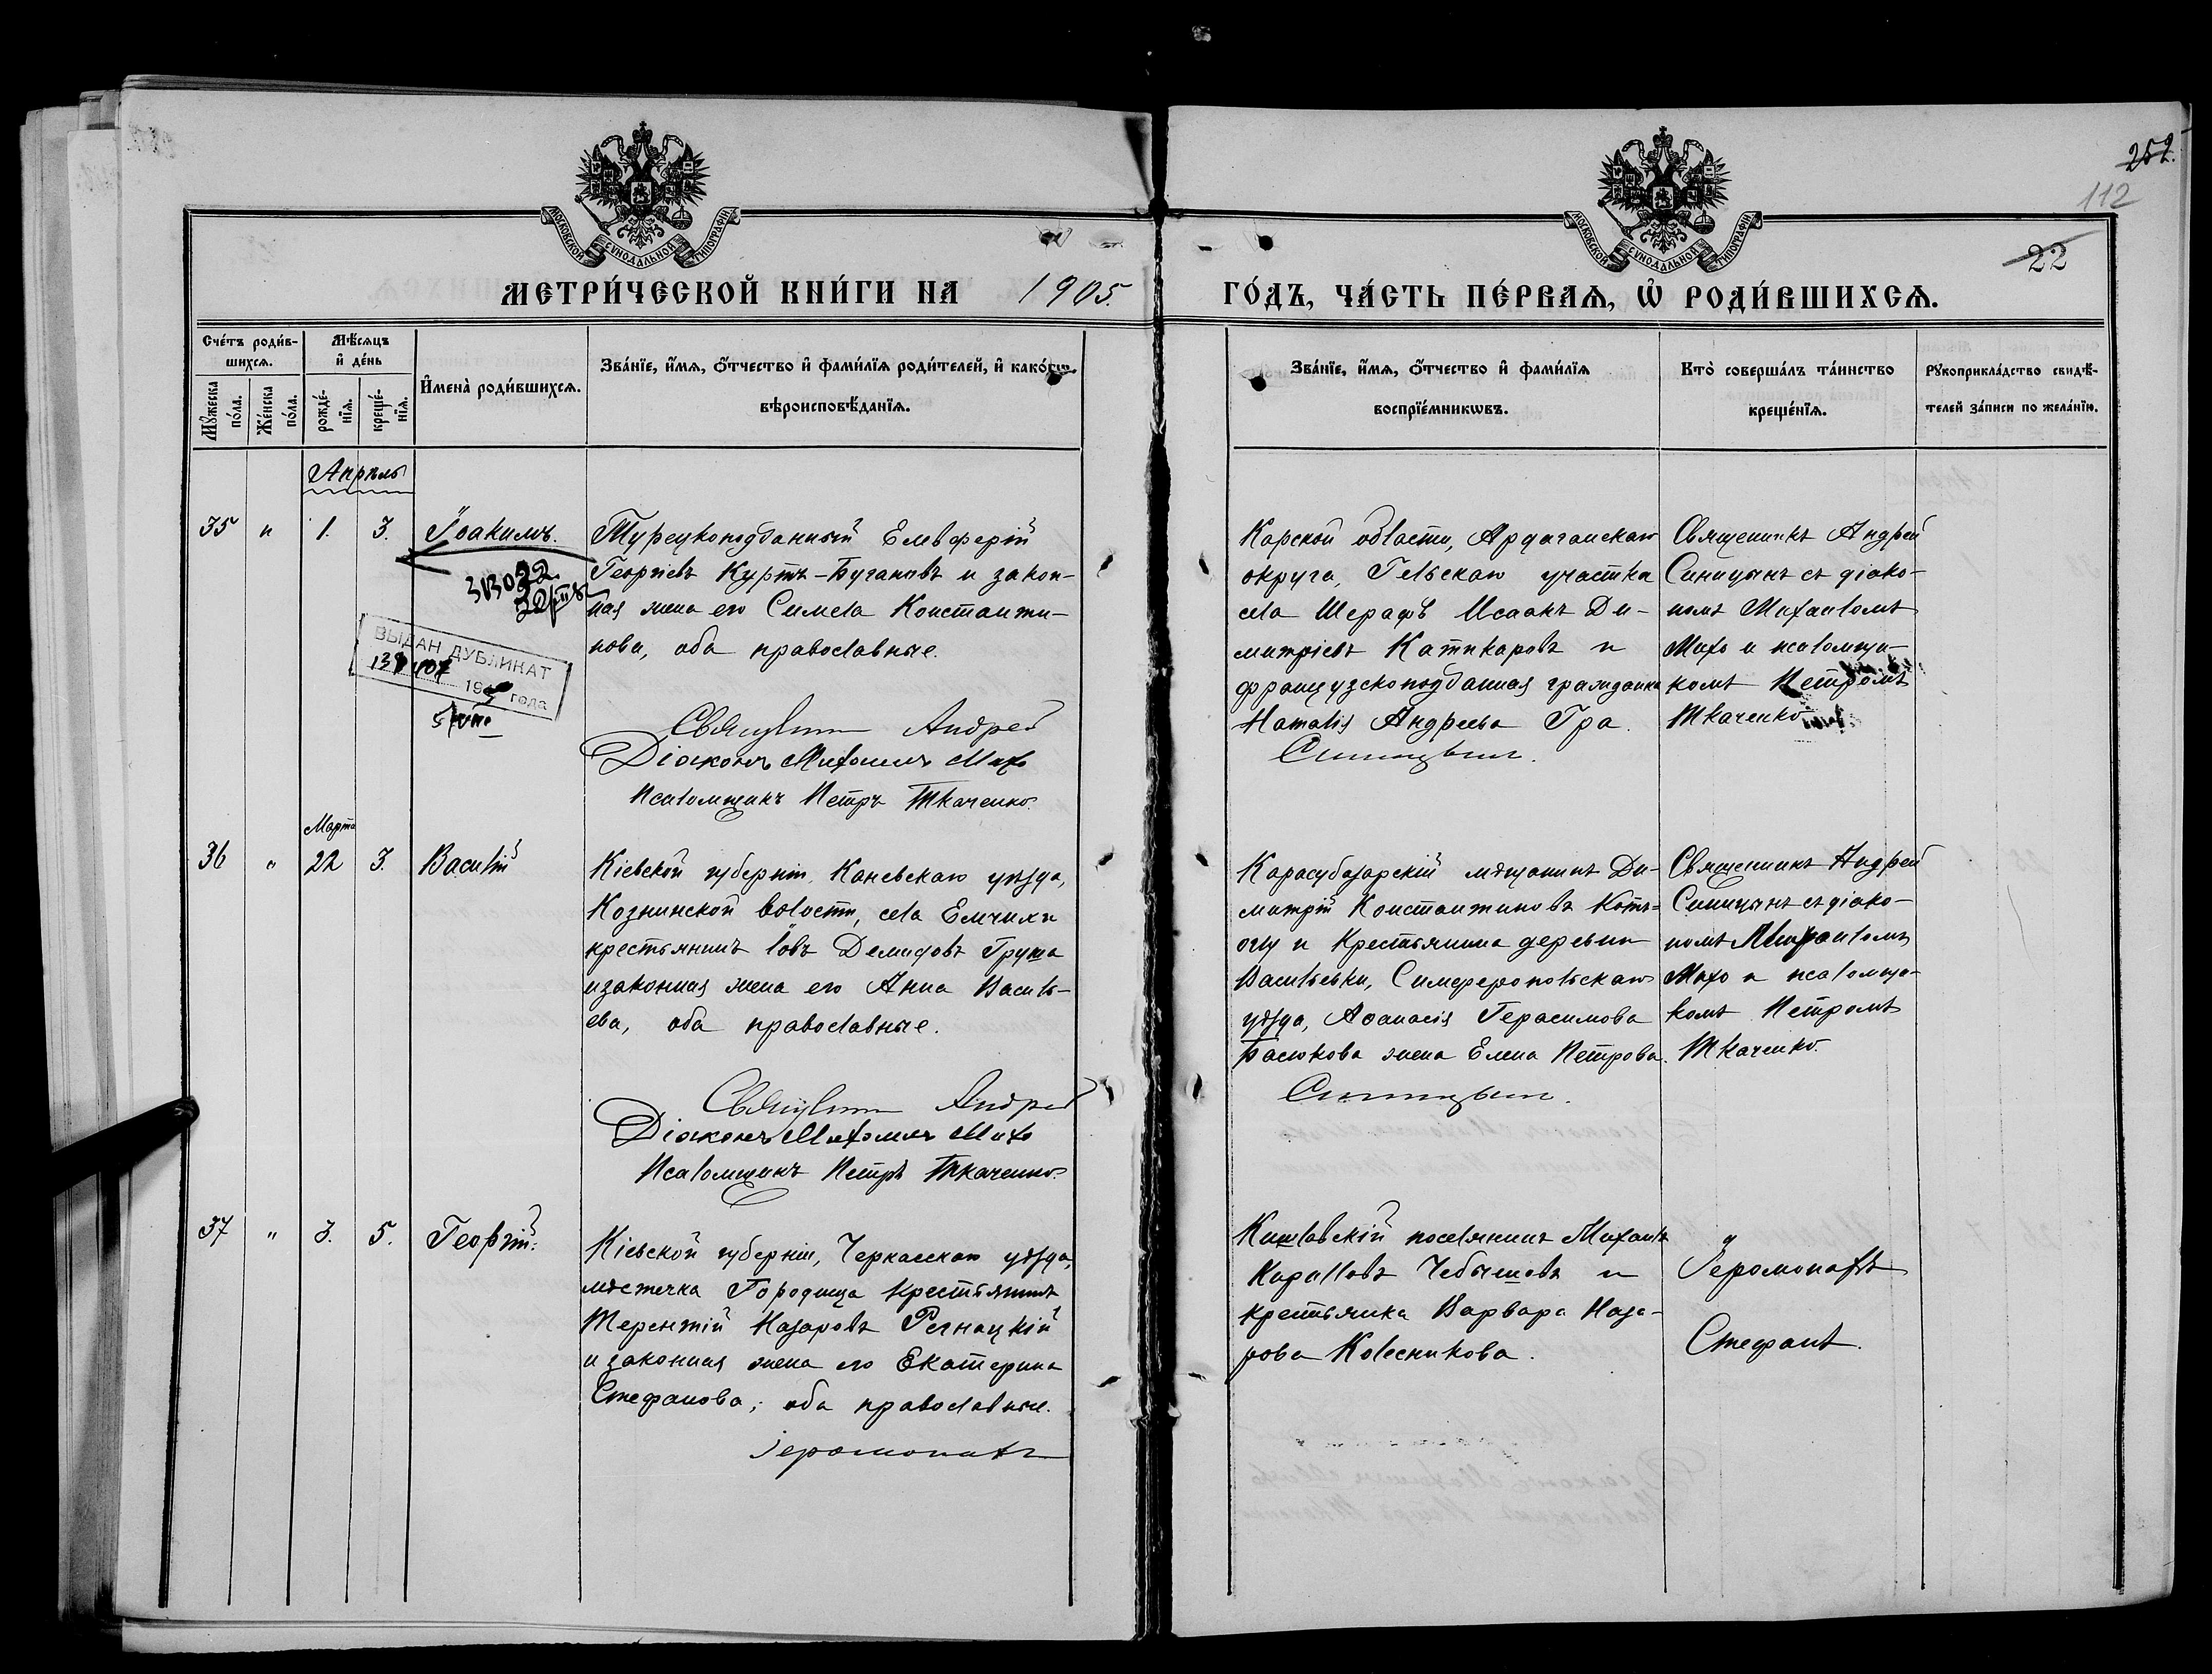 252.
112
22
МОСКОВСКОЙ СѴНОДАЛЬНОЙ ТИПОГРАФІИ
МОСКОВСКОЙ СѴНОДАЛЬНОЙ ТИПОГРАФІИ
МЕТРИ́ЧЕСКОЙ КНИ́ГИ НА 1905.
ГО́ДЪ, ЧА́СТЬ ПЕ́РВАѦ, Ѽ РОДИ́ВШИХСѦ.
Сче́тъ роди́в-
шихсѧ.
Мꙋ́жеска по́ла.
Же́нска по́ла.
Мѣ́сѧцъ
и҆ де́нь
рожде́-
нїѧ.
креще́-
нїѧ.
И҆мена̀ роди́вшихсѧ.
Зва́нїе, и҆́мѧ, ѻ҆́тчество и҆ фами́лїѧ роди́телей, и҆ како́гѡ
вѣроисповѣ́данїѧ.
Зва́нїе, и҆́мѧ, ѻ҆́тчество и҆ фами́лїѧ
воспрїе́мникѡвъ.
Кто̀ соверша́лъ та́инство
креще́нїѧ.
Рꙋкоприкла́дство свидѣ́-
телей за́писи по жела́нїю.
Апрѣль
35 " 1. 3. Іоакимъ.
ВЫДАН ДУБЛИКАТ
19 года
Турецкоподданный Елевферій
Георгіевъ Куртъ-Бугановъ и закон-
ная жена его Симела Константи-
нова, оба православные.
Священникъ Андрей
Діаконъ Михаилъ Михо
Псаломщикъ Петръ Ткаченко
Карской области, Ардаганскаго
округа, Гельскаго участка
села Шерафъ Исаакъ Ди-
митріевъ Катикаровъ и
французскоподданная гражданка
Наталія Андреева Гра.
Синицынъ.
Священникъ Андрей
Синицынъ съ діако-
номъ Михаиломъ
Михо и псаломщи-
комъ Петромъ
Ткаченко
Марта
36 " 22 3. Василій
Кіевской губерніи, Каневскаго уѣзда,
Козинской волости, села Емчихи
крестьянинъ Іовъ Демидовъ Груша
и законная жена его Анна Василь-
ева, оба православные.
Священникъ Андрей
Діаконъ Михаилъ Михо
Псаломщикъ Петръ Ткаченко.
Карасубазарскій мѣщанинъ Ди-
митрій Константиновъ Коть-
оглу и Крестьянина деревни
Васильевки, Симферопольскаго
уѣзда, Аѳанасія Герасимова
Басюкова жена Елена Петрова.
Синицынъ.
Священникъ Андрей
Синицынъ съ діако-
номъ Михаиломъ
Михо и псаломщи-
комъ Петромъ
Ткаченко.
37 " 3. 5. Георгій.
Кіевской губерніи, Черкасскаго уѣзда,
мѣстечка Городища крестьянинъ
Терентій Назаровъ Регнацкій
и законная жена его Екатерина
Стефанова, оба православные.
Іеромонахъ
Кишлавскій поселянинъ Михаилъ
Кирилловъ Чебышовъ и
крестьянка Варвара Наза-
рова Колесникова.
Іеромонахъ
Стефанъ.